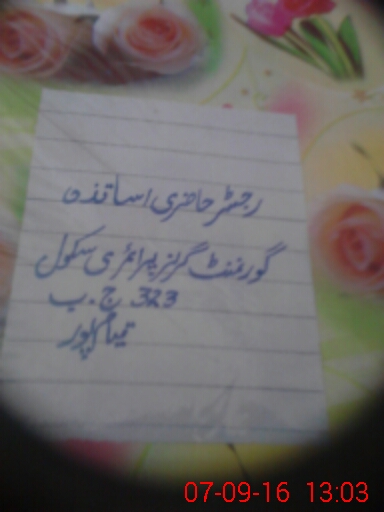 رجسٹر حاضری اساتذہ
گورنمنٹ گرلز پرائمری سکول
323 ج۔ب
07-09-16 13:03